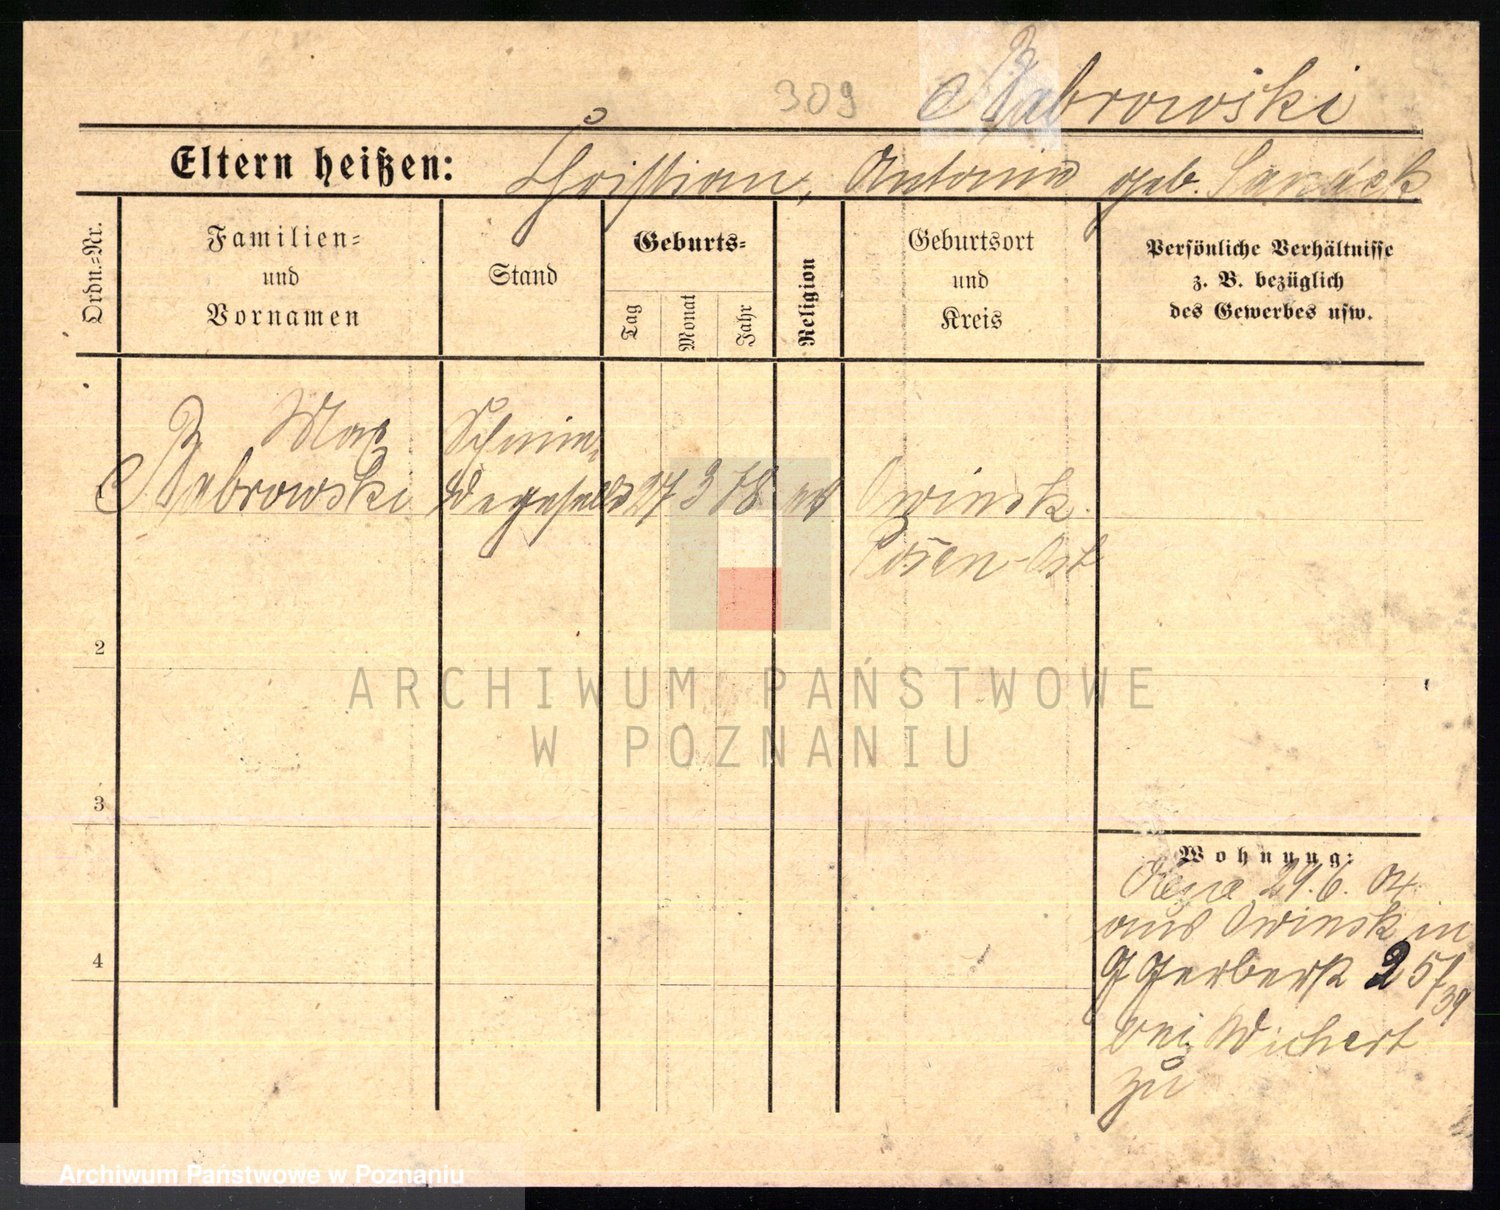 309 Babrowski
Eltern heißen: Christian, Antonie geb.
Ordn.-Nr.
Familien-
und
Vornamen
Stand
Geburts-
Tag
Monat
Jahr
Religion
Geburtsort
und
Kreis
Persönliche Verhältnisse
z. B. bezüglich
des Gewerbes usw.
Max
Babrowski
Schmie-
degeselle
27 3 78
Owinsk
Posen-Ost
2
3
4
Wohnung:
29.6. 04
aus Owinsk in
Gerberst 25/
39
bei Wichert
zu
ARCHIWUM PAŃSTWOWE
W POZNANIU
Archiwum Państwowe w Poznaniu